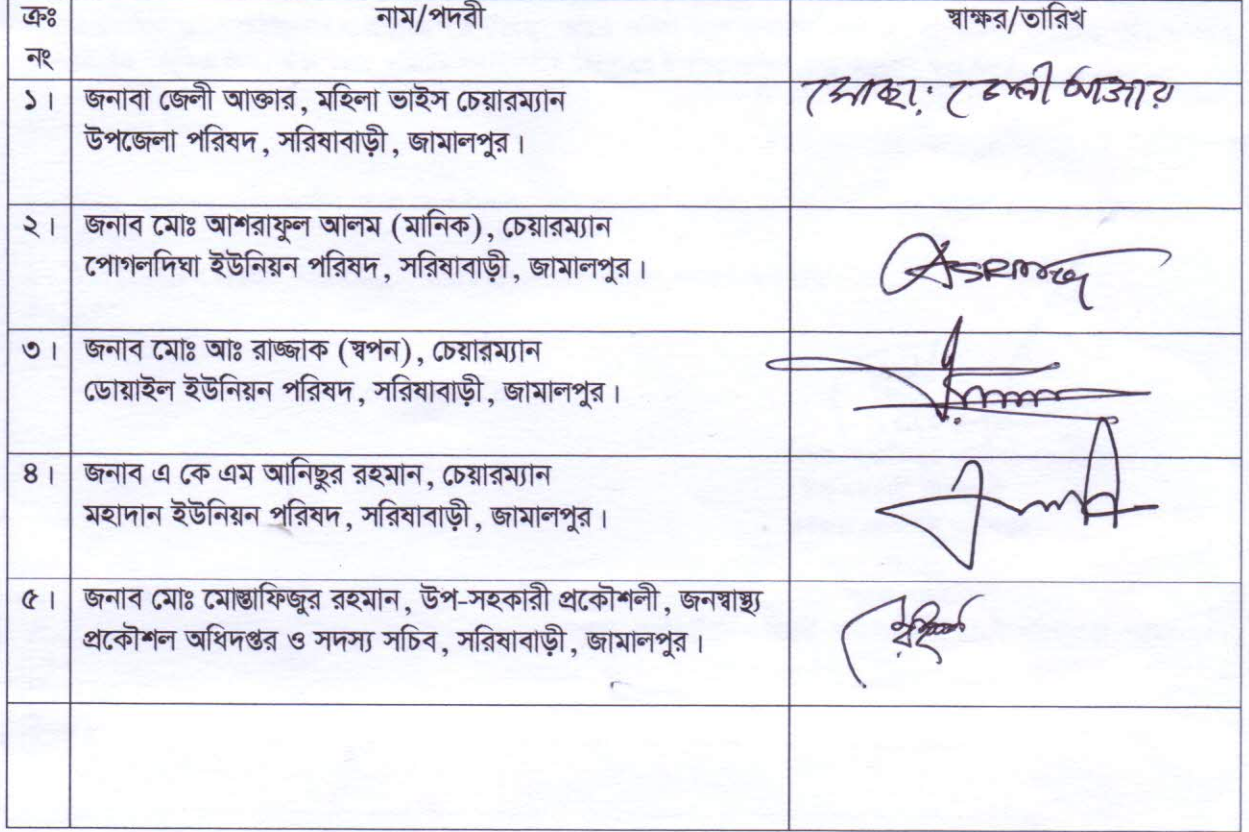 ক্রঃ নাম/পদবী স্বাক্ষর/তারিখ
নং
১। জনাবা জেলী আক্তার, মহিলা ভাইস চেয়ারম্যান
উপজেলা পরিষদ, সরিষাবাড়ী, জামালপুর।
মোছা: জেলী আক্তার
২। জনাব মোঃ আশরাফুল আলম (মানিক), চেয়ারম্যান
পোগলদিঘা ইউনিয়ন পরিষদ, সরিষাবাড়ী, জামালপুর।
৩। জনাব মোঃ আঃ রাজ্জাক (স্বপন), চেয়ারম্যান
ডোয়াইল ইউনিয়ন পরিষদ, সরিষাবাড়ী, জামালপুর।
৪। জনাব এ কে এম আনিছুর রহমান, চেয়ারম্যান
মহাদান ইউনিয়ন পরিষদ, সরিষাবাড়ী, জামালপুর।
৫। জনাব মোঃ মোস্তাফিজুর রহমান, উপ-সহকারী প্রকৌশলী, জনস্বাস্থ্য
প্রকৌশল অধিদপ্তর ও সদস্য সচিব, সরিষাবাড়ী, জামালপুর।